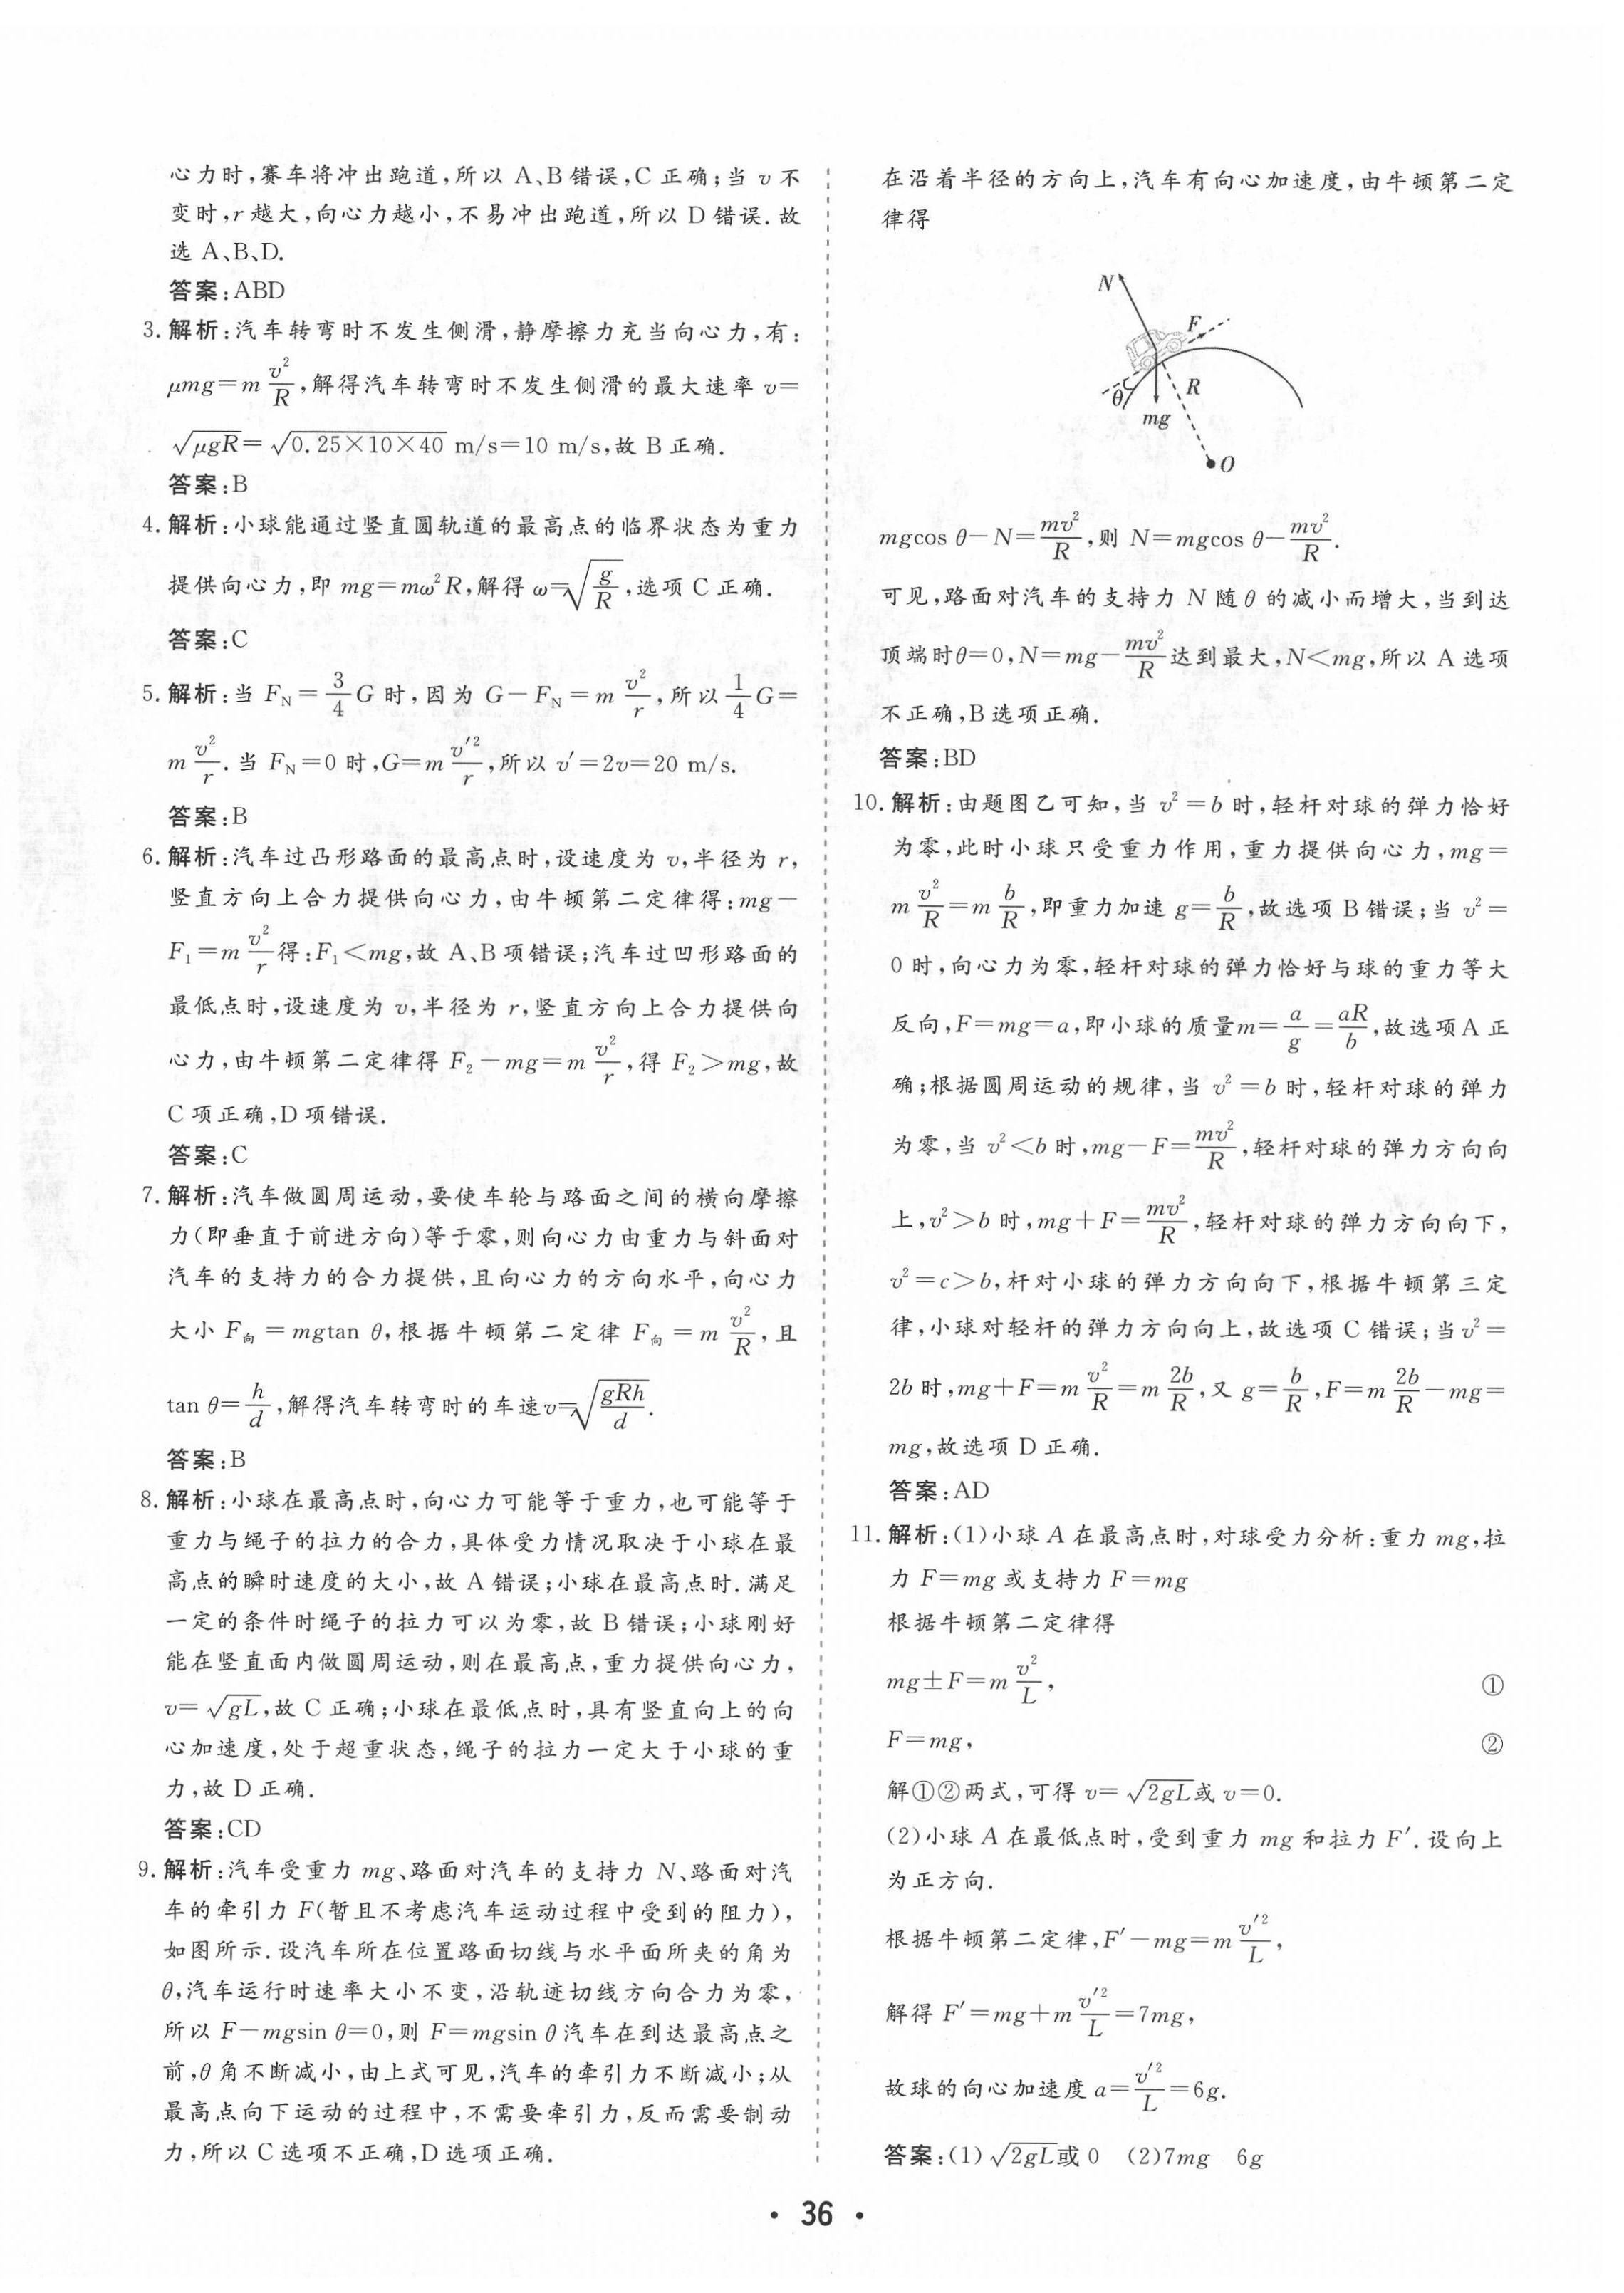 心力时,赛车将冲出跑道,所以 A、B 错误,C 正确;当 v 不
变时,r 越大,向心力越小,不易冲出跑道,所以 D 错误. 故
选 A、B、D.
答案:ABD
3. 解析:汽车转弯时不发生侧滑,静摩擦力充当向心力,有:
μmg=m v²/R,解得汽车转弯时不发生侧滑的最大速率 v=
√(μgR)=√(0.25×10×40) m/s=10 m/s,故 B 正确.
答案:B
4. 解析:小球能通过竖直圆轨道的最高点的临界状态为重力
提供向心力,即 mg=mω²R,解得 ω=√(g/R),选项 C 正确.
答案:C
5. 解析:当 F_N=3/4 G 时,因为 G-F_N=m v²/r,所以 1/4 G=
m v²/r. 当 F_N=0 时,G=m v′²/r,所以 v′=2v=20 m/s.
答案:B
6. 解析:汽车过凸形路面的最高点时,设速度为 v,半径为 r,
竖直方向上合力提供向心力,由牛顿第二定律得:mg-
F₁=m v²/r 得:F₁<mg,故 A、B 项错误;汽车过凹形路面的
最低点时,设速度为 v,半径为 r,竖直方向上合力提供向
心力,由牛顿第二定律得 F₂-mg=m v²/r,得 F₂>mg,故
C 项正确,D 项错误.
答案:C
7. 解析:汽车做圆周运动,要使车轮与路面之间的横向摩擦
力(即垂直于前进方向)等于零,则向心力由重力与斜面对
汽车的支持力的合力提供,且向心力的方向水平,向心力
大小 F向=mgtan θ,根据牛顿第二定律 F向=m v²/R,且
tan θ=h/d,解得汽车转弯时的车速 v=√(gRh/d).
答案:B
8. 解析:小球在最高点时,向心力可能等于重力,也可能等于
重力与绳子的拉力的合力,具体受力情况取决于小球在最
高点的瞬时速度的大小,故 A 错误;小球在最高点时. 满足
一定的条件时绳子的拉力可以为零,故 B 错误;小球刚好
能在竖直面内做圆周运动,则在最高点,重力提供向心力,
v=√(gL),故 C 正确;小球在最低点时,具有竖直向上的向
心加速度,处于超重状态,绳子的拉力一定大于小球的重
力,故 D 正确.
答案:CD
9. 解析:汽车受重力 mg、路面对汽车的支持力 N、路面对汽
车的牵引力 F(暂且不考虑汽车运动过程中受到的阻力),
如图所示. 设汽车所在位置路面切线与水平面所夹的角为
θ,汽车运行时速率大小不变,沿轨迹切线方向合力为零,
所以 F-mgsin θ=0,则 F=mgsin θ 汽车在到达最高点之
前,θ 角不断减小,由上式可见,汽车的牵引力不断减小;从
最高点向下运动的过程中,不需要牵引力,反而需要制动
力,所以 C 选项不正确,D 选项正确.
在沿着半径的方向上,汽车有向心加速度,由牛顿第二定
律得
N
F
θ
R
mg
O
mgcos θ-N=mv²/R,则 N=mgcos θ-mv²/R.
可见,路面对汽车的支持力 N 随 θ 的减小而增大,当到达
顶端时 θ=0,N=mg-mv²/R 达到最大,N<mg,所以 A 选项
不正确,B 选项正确.
答案:BD
10. 解析:由题图乙可知,当 v²=b 时,轻杆对球的弹力恰好
为零,此时小球只受重力作用,重力提供向心力,mg=
m v²/R=m b/R,即重力加速 g=b/R,故选项 B 错误;当 v²=
0 时,向心力为零,轻杆对球的弹力恰好与球的重力等大
反向,F=mg=a,即小球的质量 m=a/g=aR/b,故选项 A 正
确;根据圆周运动的规律,当 v²=b 时,轻杆对球的弹力
为零,当 v²<b 时,mg-F=mv²/R,轻杆对球的弹力方向向
上,v²>b 时,mg+F=mv²/R,轻杆对球的弹力方向向下,
v²=c>b,杆对小球的弹力方向向下,根据牛顿第三定
律,小球对轻杆的弹力方向向上,故选项 C 错误;当 v²=
2b 时,mg+F=m v²/R=m 2b/R,又 g=b/R,F=m 2b/R-mg=
mg,故选项 D 正确.
答案:AD
11. 解析:(1)小球 A 在最高点时,对球受力分析:重力 mg,拉
力 F=mg 或支持力 F=mg
根据牛顿第二定律得
mg±F=m v²/L, ①
F=mg, ②
解①②两式,可得 v=√(2gL)或 v=0.
(2)小球 A 在最低点时,受到重力 mg 和拉力 F′. 设向上
为正方向.
根据牛顿第二定律,F′-mg=m v′²/L,
解得 F′=mg+m v′²/L=7mg,
故球的向心加速度 a=v′²/L=6g.
答案:(1)√(2gL)或 0 (2)7mg 6g
• 36 •